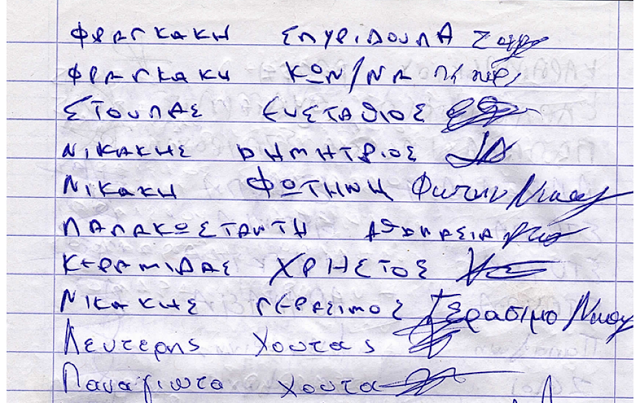 ΦΡΑΓΚΑΚΗ ΣΠΥΡΙΔΟΥΛΑ
ΦΡΑΓΚΑΚΗ ΚΩΝ/ΝΑ
ΣΤΟΥΠΑΣ ΕΥΣΤΑΘΙΟΣ
ΝΙΚΑΚΗΣ ΔΗΜΗΤΡΙΟΣ
ΝΙΚΑΚΗ ΦΩΤΗΝΗ Φωτηνη Νικακη
ΠΑΠΑΚΩΣΤΑΝΤΗ ΑΘΑΝΑΣΙΑ
ΚΕΡΑΜΙΔΑΣ ΧΡΗΣΤΟΣ
ΝΙΚΑΚΗΣ ΓΕΡΑΣΙΜΟΣ Γεράσιμο
Λευτερης Χουτας
Παναγιωτα Χουτα